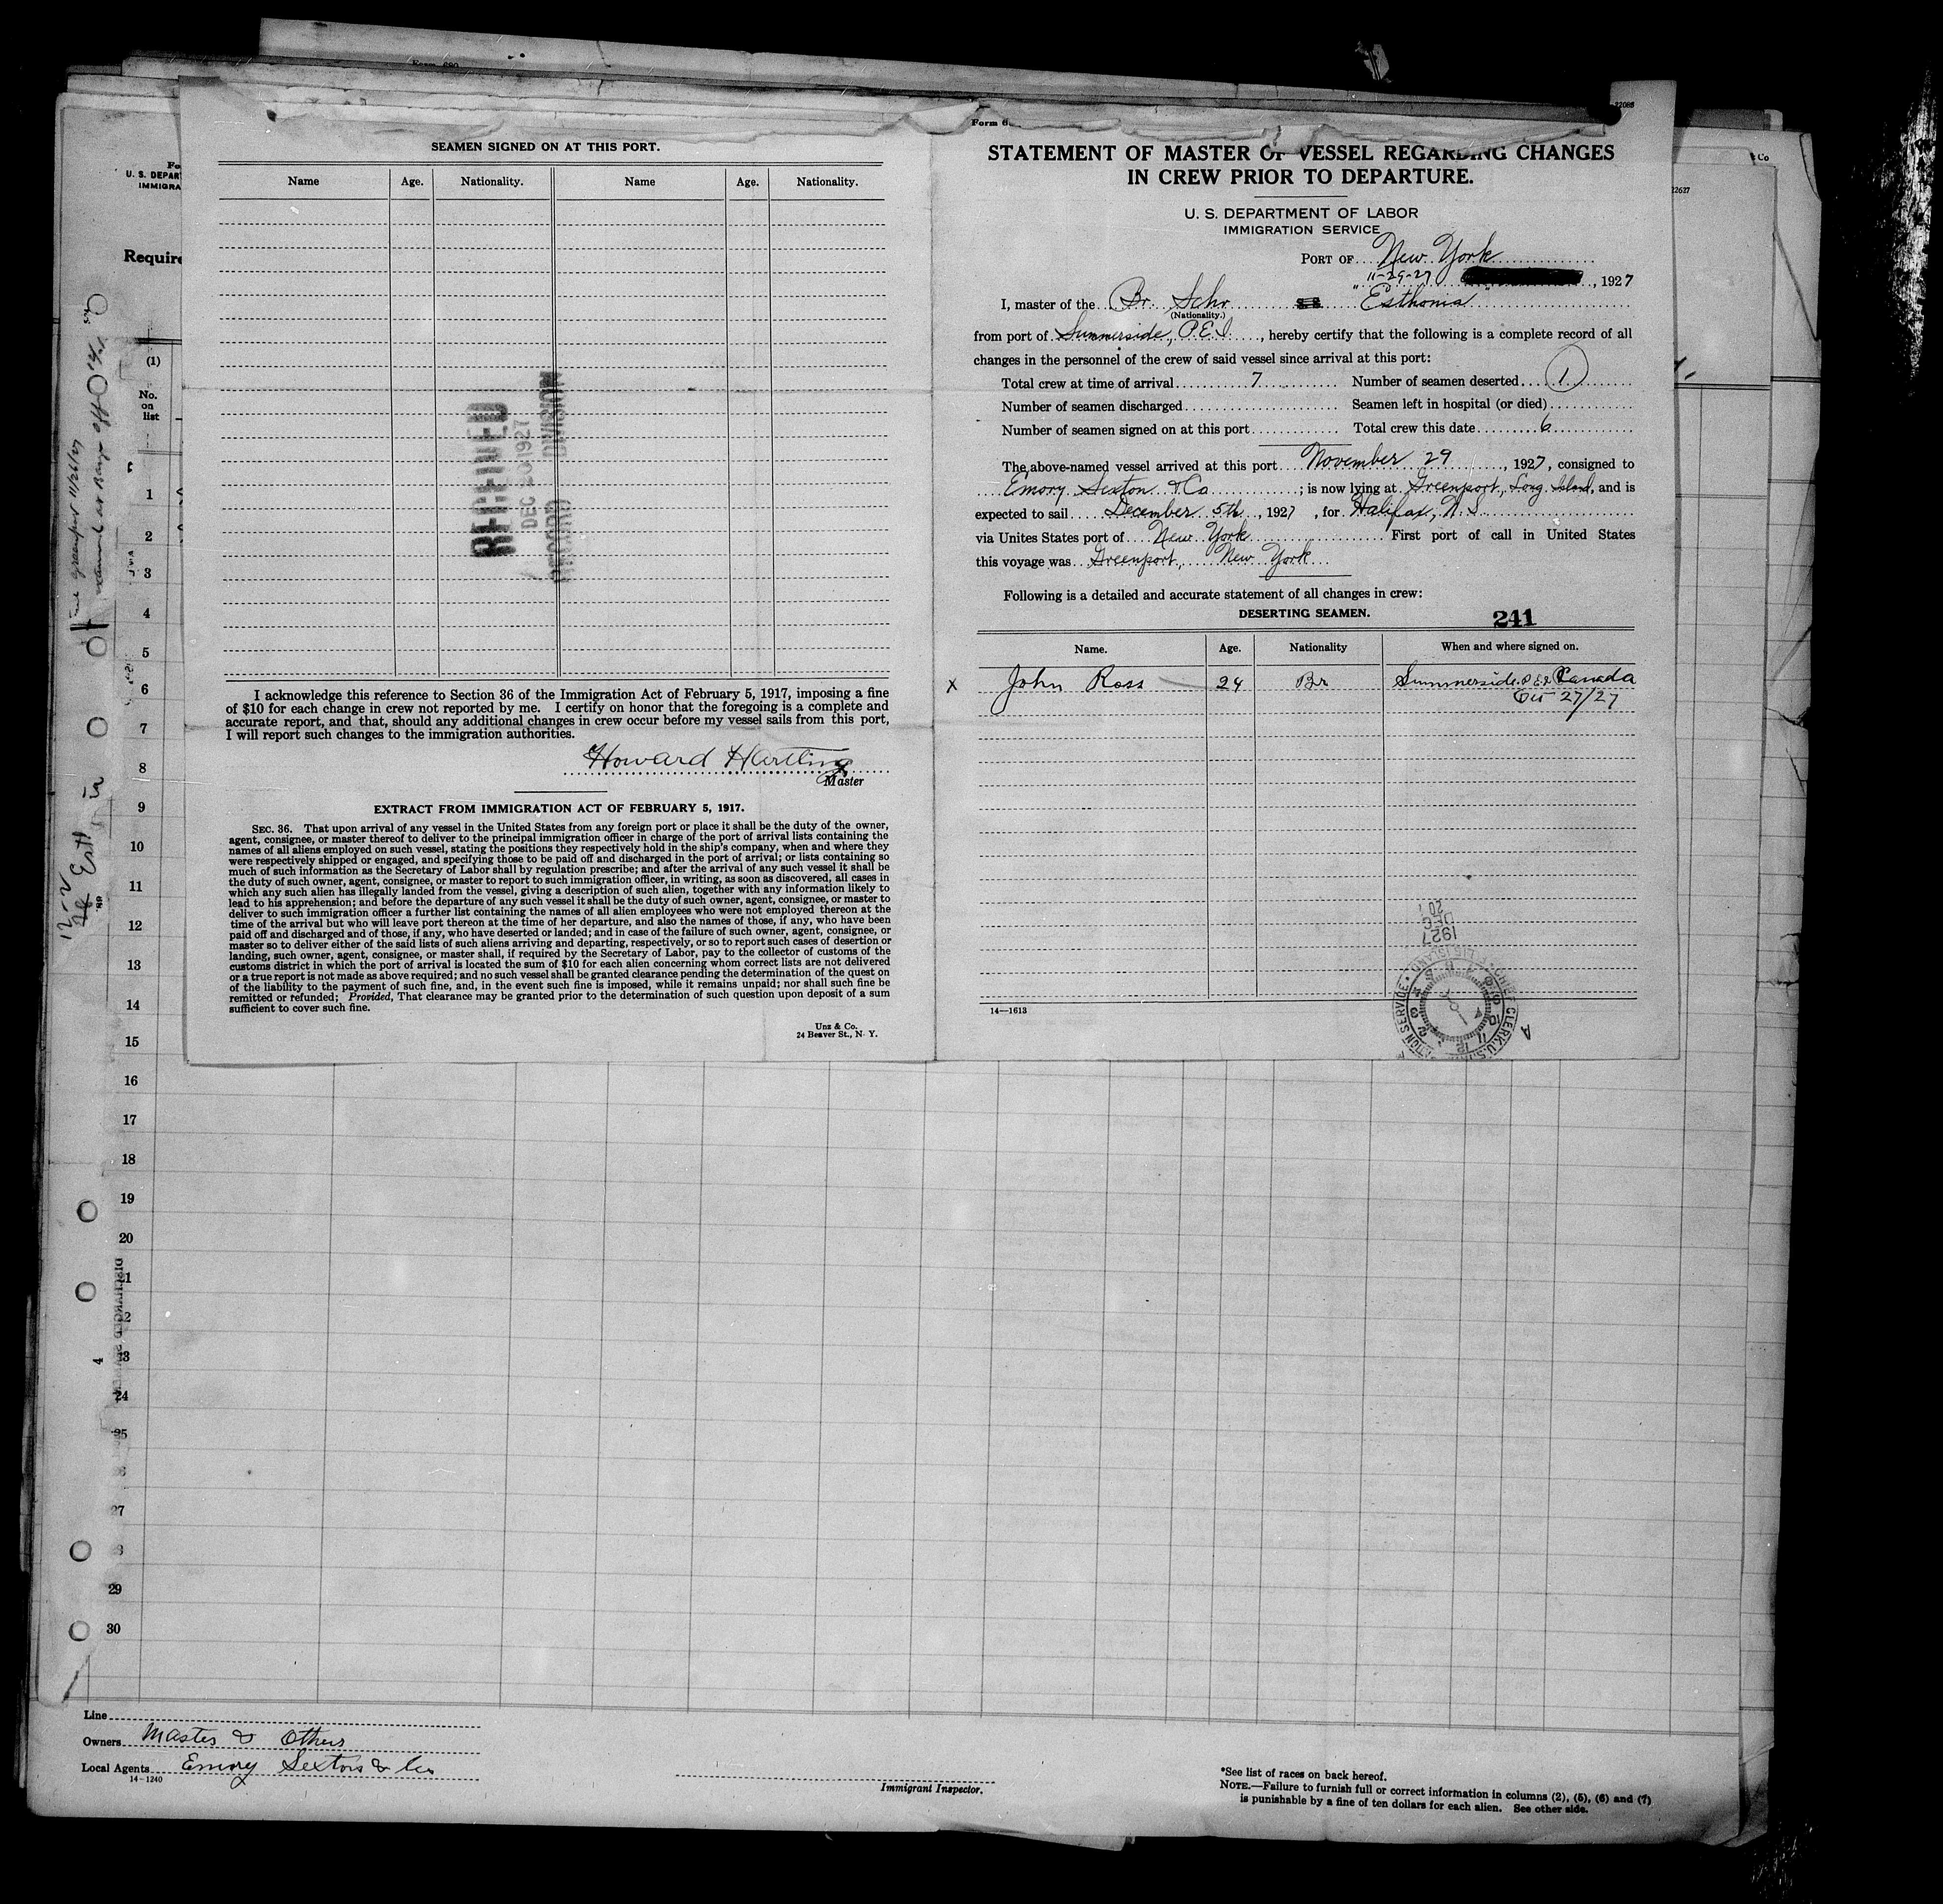 Form 689
22086
Co
22627
Fo
U. S. DEPAR
IMMIGRA
Require
(1)
No.
on
list
SEAMEN SIGNED ON AT THIS PORT.
Name Age. Nationality. Name Age. Nationality.
DEC 20 1927
RECORD DIVISION
I acknowledge this reference to Section 36 of the Immigration Act of February 5, 1917, imposing a fine
of $10 for each change in crew not reported by me. I certify on honor that the foregoing is a complete and
accurate report, and that, should any additional changes in crew occur before my vessel sails from this port,
I will report such changes to the immigration authorities.
Howard Hartling
Master
EXTRACT FROM IMMIGRATION ACT OF FEBRUARY 5, 1917.
SEC. 36. That upon arrival of any vessel in the United States from any foreign port or place it shall be the duty of the owner,
agent, consignee, or master thereof to deliver to the principal immigration officer in charge of the port of arrival lists containing the
names of all aliens employed on such vessel, stating the positions they respectively hold in the ship's company, when and where they
were respectively shipped or engaged, and specifying those to be paid off and discharged in the port of arrival; or lists containing so
much of such information as the Secretary of Labor shall by regulation prescribe; and after the arrival of any such vessel it shall be
the duty of such owner, agent, consignee, or master to report to such immigration officer, in writing, as soon as discovered, all cases in
which any such alien has illegally landed from the vessel, giving a description of such alien, together with any information likely to
lead to his apprehension; and before the departure of any such vessel it shall be the duty of such owner, agent, consignee, or master to
deliver to such immigration officer a further list containing the names of all alien employees who were not employed thereon at the
time of the arrival but who will leave port thereon at the time of her departure, and also the names of those, if any, who have been
paid off and discharged and of those, if any, who have deserted or landed; and in case of the failure of such owner, agent, consignee, or
master so to deliver either of the said lists of such aliens arriving and departing, respectively, or so to report such cases of desertion or
landing, such owner, agent, consignee, or master shall, if required by the Secretary of Labor, pay to the collector of customs of the
customs district in which the port of arrival is located the sum of $10 for each alien concerning whom correct lists are not delivered
or a true report is not made as above required; and no such vessel shall be granted clearance pending the determination of the quest on
of the liability to the payment of such fine, and, in the event such fine is imposed, while it remains unpaid; nor shall such fine be
remitted or refunded; Provided, That clearance may be granted prior to the determination of such question upon deposit of a sum
sufficient to cover such fine.
Unz & Co.
24 Beaver St., N. Y.
Form 6
STATEMENT OF MASTER OF VESSEL REGARDING CHANGES
IN CREW PRIOR TO DEPARTURE.
U. S. DEPARTMENT OF LABOR
IMMIGRATION SERVICE
PORT OF New York
11-29-27 , 1927
I, master of the Br. Schr. "Esthonia"
(Nationality.)
from port of Summerside, P.E.I. , hereby certify that the following is a complete record of all
changes in the personnel of the crew of said vessel since arrival at this port:
Total crew at time of arrival 7 Number of seamen deserted 1
Number of seamen discharged Seamen left in hospital (or died)
Number of seamen signed on at this port Total crew this date 6
The above-named vessel arrived at this port November 29 , 1927, consigned to
Emory Sexton & Co ; is now lying at Greenport, Long Island, and is
expected to sail December 5th , 1927 , for Halifax, N.S.
via Unites States port of New York First port of call in United States
this voyage was Greenport, New York
Following is a detailed and accurate statement of all changes in crew:
DESERTING SEAMEN. 241
Name. Age. Nationality When and where signed on.
x John Ross 24 Br Summerside. P.E.I. Canada
Oct 27/27
14—1613
DEC
20
1927
CHIEF CLERK, U.S.
1
2
3
4
5
6
7
8
9
10
11
12
13
14
15
16
17
18
19
20
24
27
29
30
Line
Owners Master & Others
Local Agents Emory Sexton & Co
14-1240
Immigrant Inspector.
*See list of races on back hereof.
NOTE.—Failure to furnish full or correct information in columns (2), (5), (6) and (7)
is punishable by a fine of ten dollars for each alien. See other side.